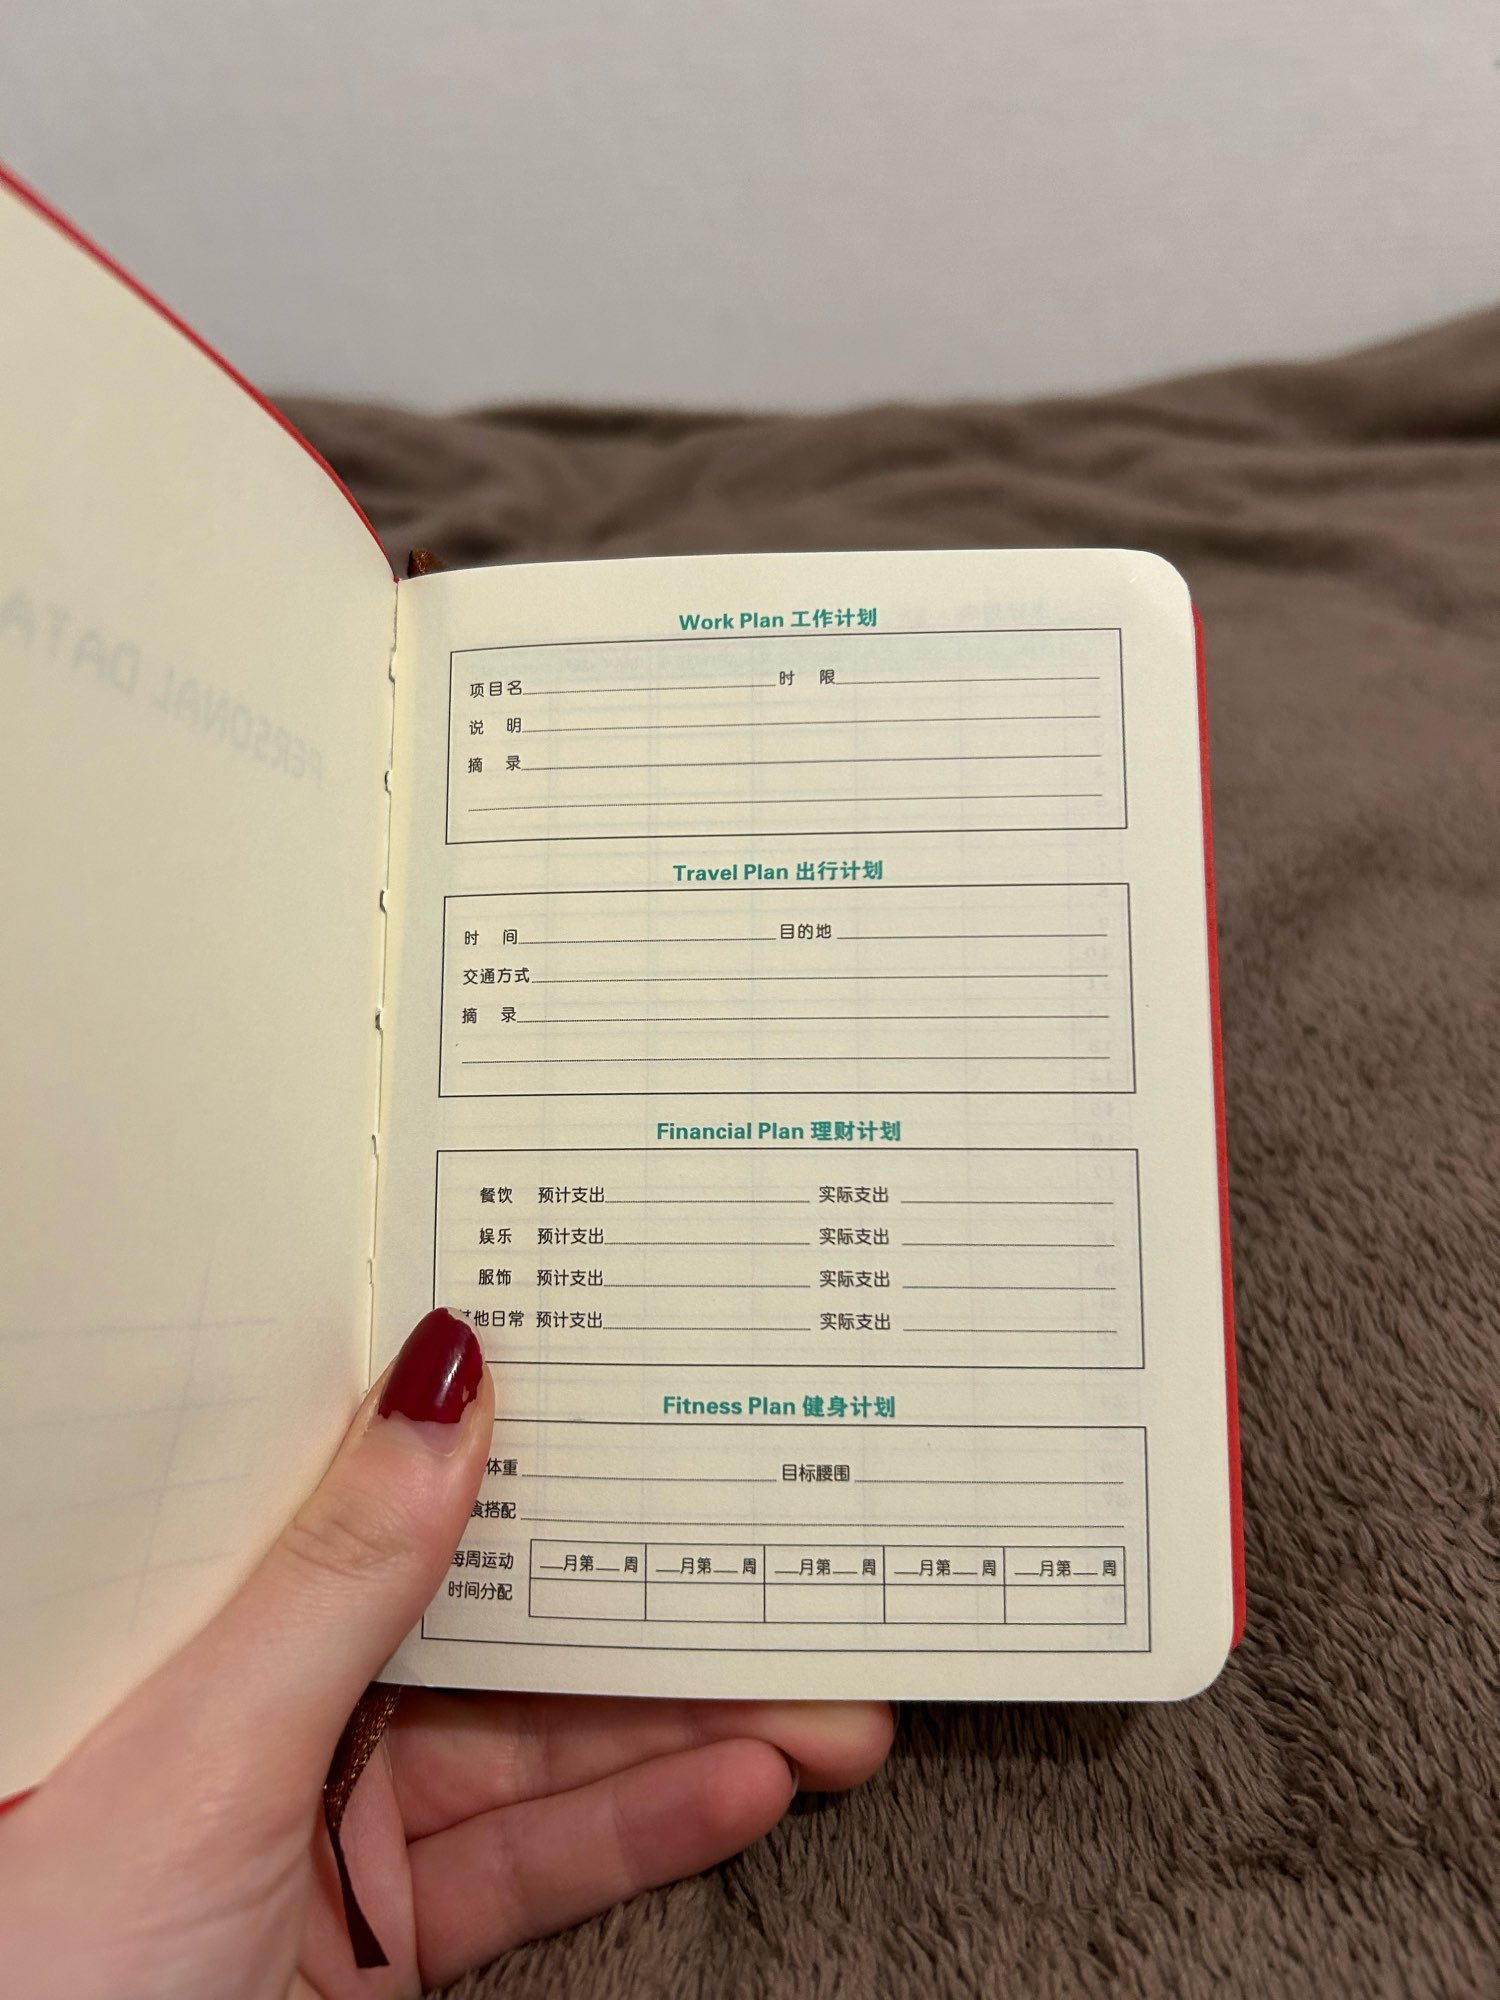 PERSONAL DATA
Work Plan 工作计划
项目名 时 限
说 明
摘 录
Travel Plan 出行计划
时 间 目的地
交通方式
摘 录
Financial Plan 理财计划
餐饮 预计支出 实际支出
娱乐 预计支出 实际支出
服饰 预计支出 实际支出
其他日常 预计支出 实际支出
Fitness Plan 健身计划
体重 目标腰围
食搭配
每周运动 __月第__周 __月第__周 __月第__周 __月第__周 __月第__周
时间分配